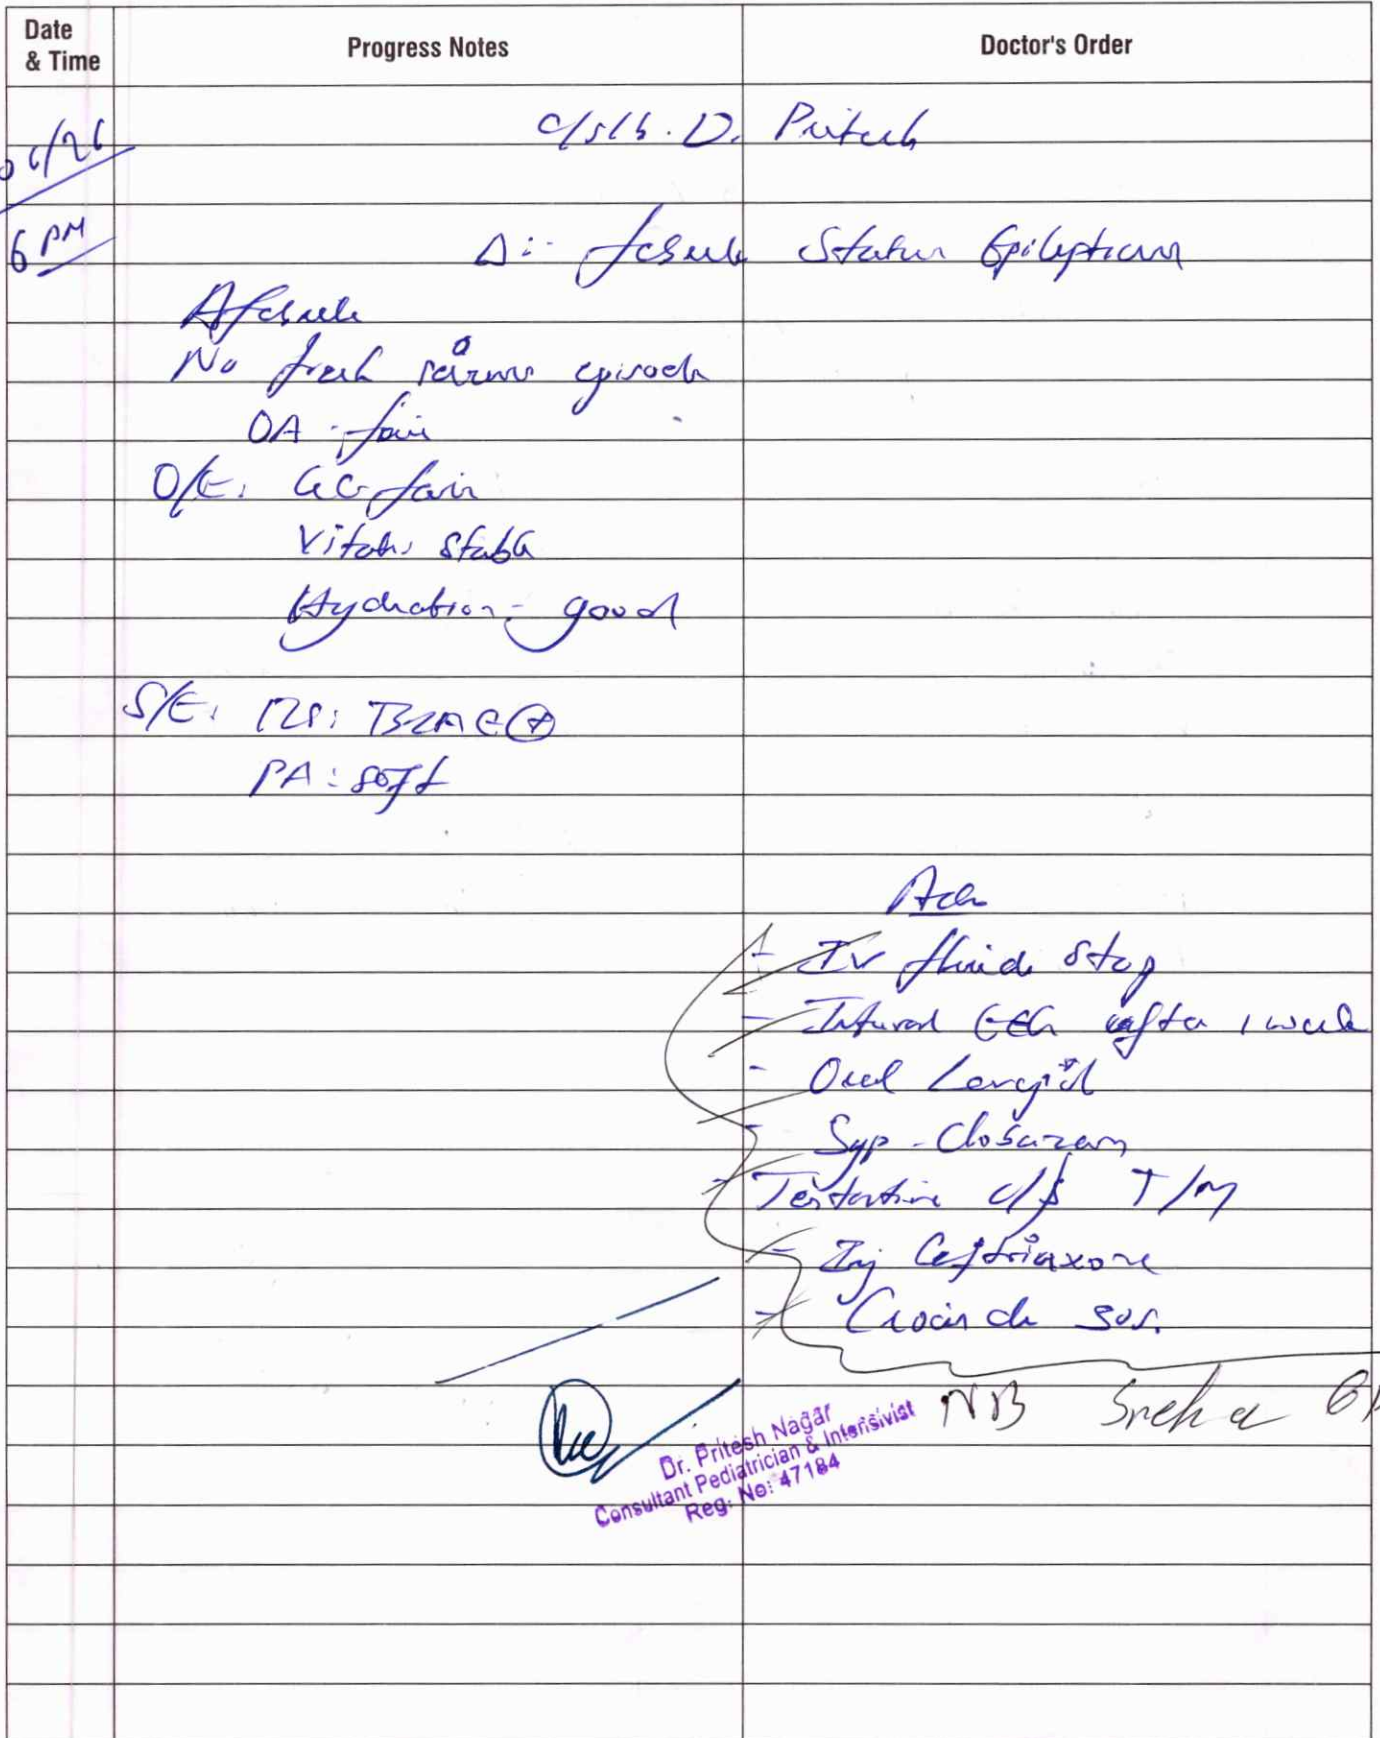 Date
& Time
Progress Notes
Doctor's Order
06/26
c/s/b. D. Pritesh
6 PM
Δ:- febrile Status Epilepticus
Afebrile
No fresh seizure episode
OA - fair
O/E: GC fair
Vitals, stable
Hydration - good
S/E: RS: BLAE ⊕
PA: soft
Adv
- IV fluid stop
- Interval EEG after 1 week
- Oral Levepil
- Syp - Clobazam
- Tentative c/s T/M
- Inj Ceftriaxone
- Crocin ds sos.
NB Sneha
Dr. Pritesh Nagar
Consultant Pediatrician & Intensivist
Reg: No: 47184